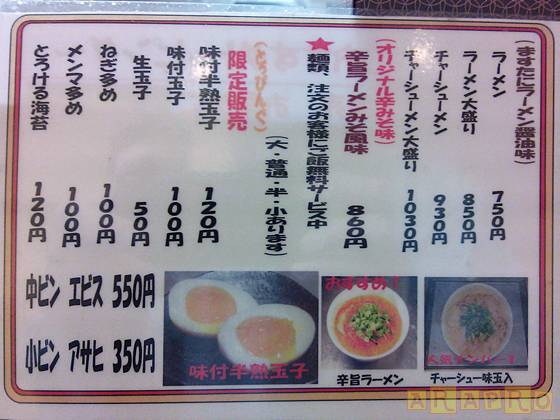 (ますたにラーメン醤油味)
ラーメン 750円
ラーメン大盛り 850円
チャーシューメン 930円
チャーシューメン大盛り 1030円
(オリジナル辛みそ味)
辛旨ラーメンみそ風味 860円
★麺類、注文のお客様にご飯無料サービス中
(大・普通・半・小あります)
(とっぴんぐ)
限定販売
味付半熟玉子 120円
味付玉子 100円
生玉子 50円
ねぎ多め 100円
メンマ多め 100円
とろける海苔 120円
中ビン エビス 550円
小ビン アサヒ 350円
味付半熟玉子
おすすめ!
辛旨ラーメン
人気ナンバー1
チャーシュー味玉入
ARAPRO